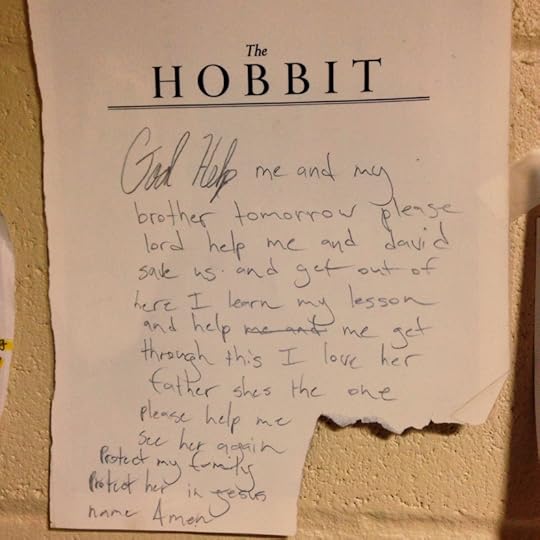 The
HOBBIT
God Help me and my
brother tomorrow please
lord help me and david
save us. and get out of
here I learn my lesson
and help me and me get
through this I love her
father shes the one
please help me
see her again
Protect my family
Protect her in jesus
name Amen